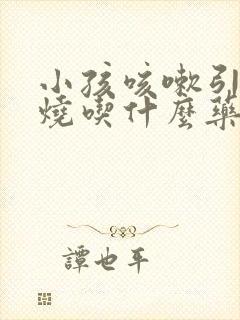 小孩咳嗽引
燒喫什麼藥
譚也平